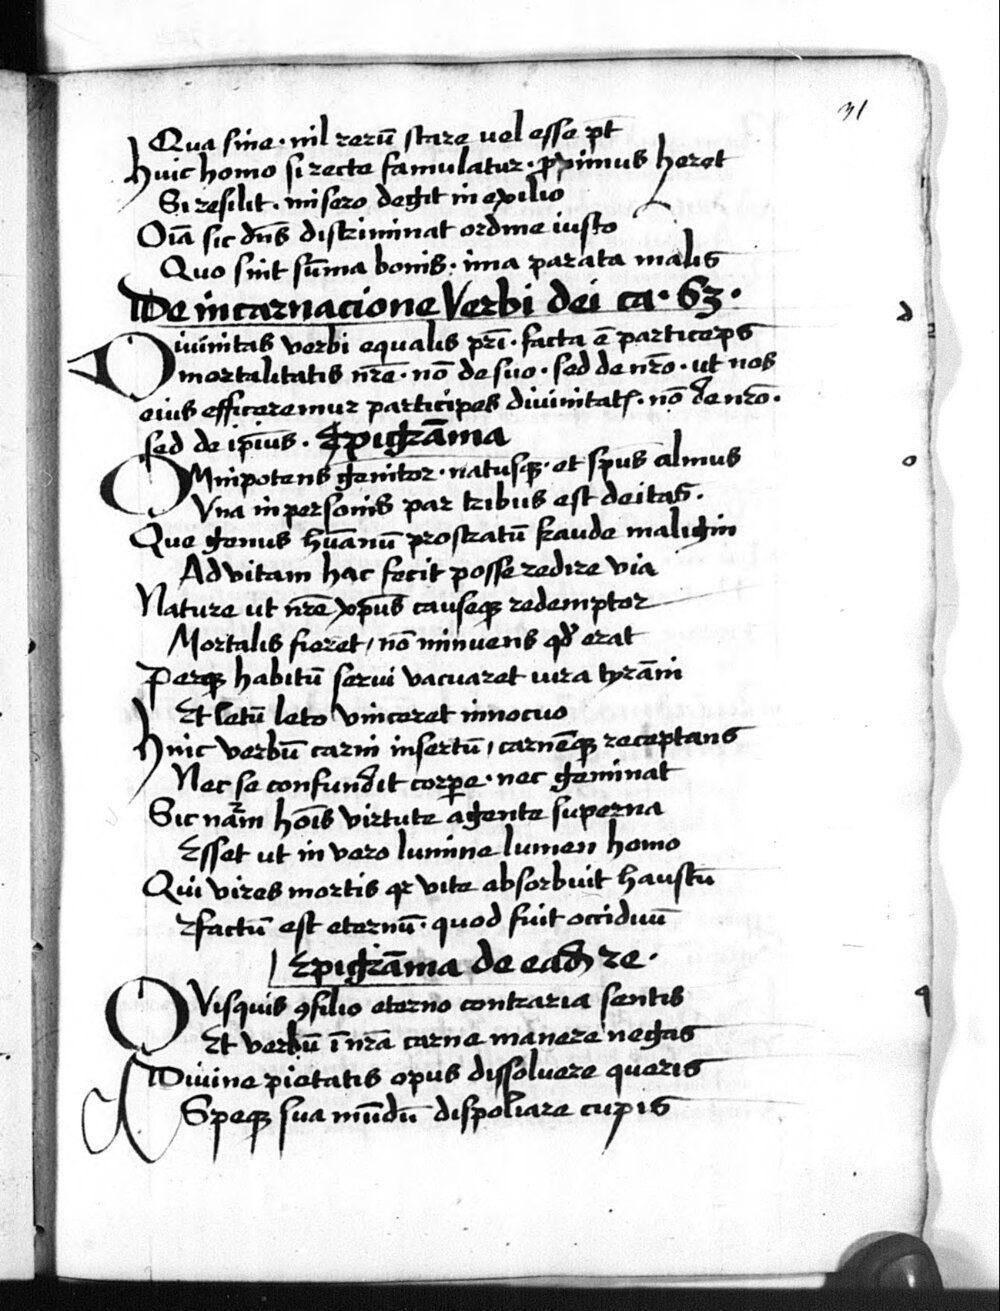 31
Qua sine · nil rerū stare uel esse pt̄
huic homo si recte famulatur · ꝓximus heret
Si resilit · misero degit in exilio
Oīa sic dn̄s discriminat ordine iusto
Quo sint sūma bonis · ima parata malis
De incarnacione Verbi dei ca · 63 ·
Diuinitas verbi equalis pr̄i · facta ē particeps
mortalitatis nr̄e · nō de suo · sed de nr̄o · ut nos
eius efficeremur participes diuinitatꝭ · nō de nr̄o ·
sed de ip̄ius · Epigrāma
OMnipotens genitor · natusqꝫ · et sp̄us almus
Vna in personis par tribus est deitas ·
Que genus hūanū prostratū fraude maligni
Ad vitam hac fecit posse redire via
Nature ut nr̄e xp̄us causeqꝫ redemptor
Mortalis fieret / nō minuens qd̓ erat
Perqꝫ habitū serui vacuaret iura tyrāni
Et letū leto vinceret innocuo
Huic verbū carni insertū / carnēqꝫ receptans
Nec se confundit corꝑe · nec geminat
Sic nām hōis virtute agente superna
Esset ut in vero lumine lumen homo
Qui vires mortis qr vite absorbuit haustū
Et factū est eternū · quod fuit occiduū
Epigrāma de ead̓ re ·
QVisquis ꝯsilio eterno contraria sentis
Et verbū ī nr̄a carne manere negas
Diuine pietatis opus dissoluere queris
Speqꝫ sua mūdū dispoliare cupis
d
o
q